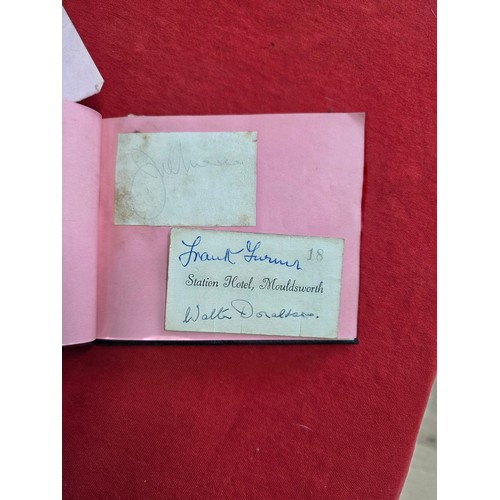 Frank Turner 18
Station Hotel, Mouldsworth
Walter Donaldson.